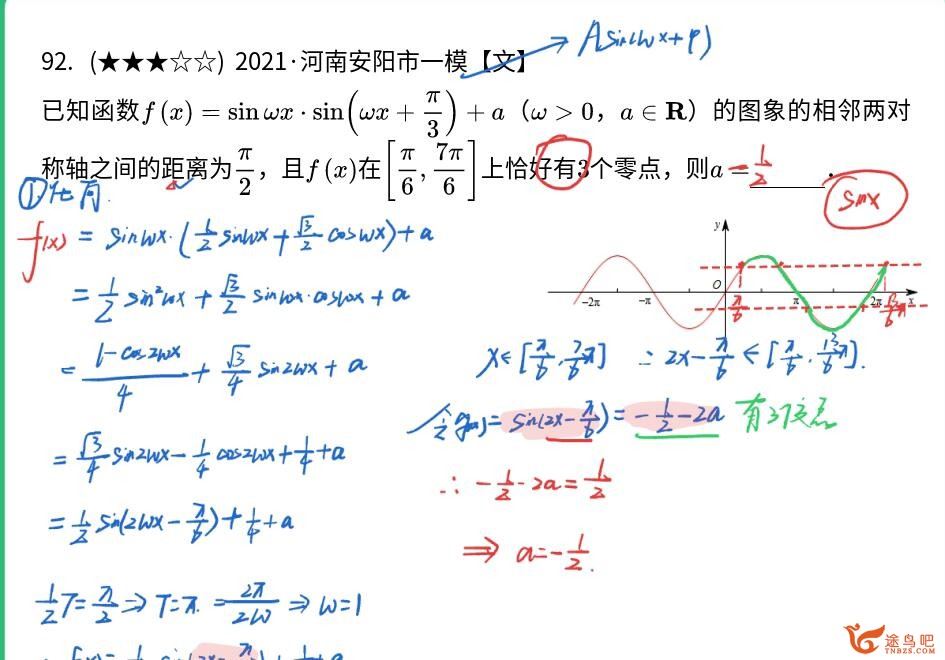 Asin(ωx+φ)
92. (★★★☆☆) 2021·河南安阳市一模【文】
已知函数f(x)=sin ωx·sin(ωx+π/3)+a（ω>0，a∈R）的图象的相邻两对
称轴之间的距离为π/2，且f(x)在[π/6, 7π/6]上恰好有3个零点，则a=-1/2.
①化简.
sinx
f(x)=sinωx·(1/2 sinωx+√3/2 cosωx)+a
=1/2 sin²ωx+√3/2 sinωx·cosωx+a
=(1-cos2ωx)/4+√3/4 sin2ωx+a
=√3/4 sin2ωx-1/4 cos2ωx+1/4+a
=1/2 sin(2ωx-π/6)+1/4+a
1/2 T=π/2⇒T=π=2π/2ω⇒ω=1
y
-2π -π O π/6 π 2π 13π/6 x
x∈[π/6, 7π/6] ∴2x-π/6∈[π/6, 13π/6].
令g(x)=sin(2x-π/6)=-1/2-2a 有3个交点
∴-1/2-2a=1/2
⇒a=-1/2.
途鸟吧
TNBZS.COM